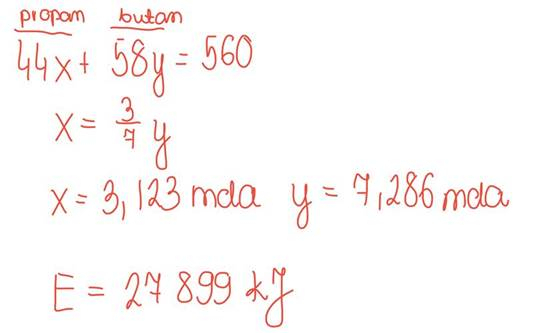 propan butan
44x + 58y = 560
x = 3/7 y
x = 3,123 mola y = 7,286 mola
E = 27 899 kJ